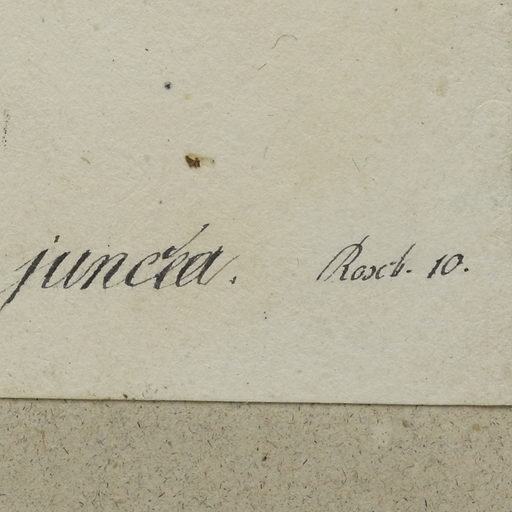 juncea. Roxb. 10.